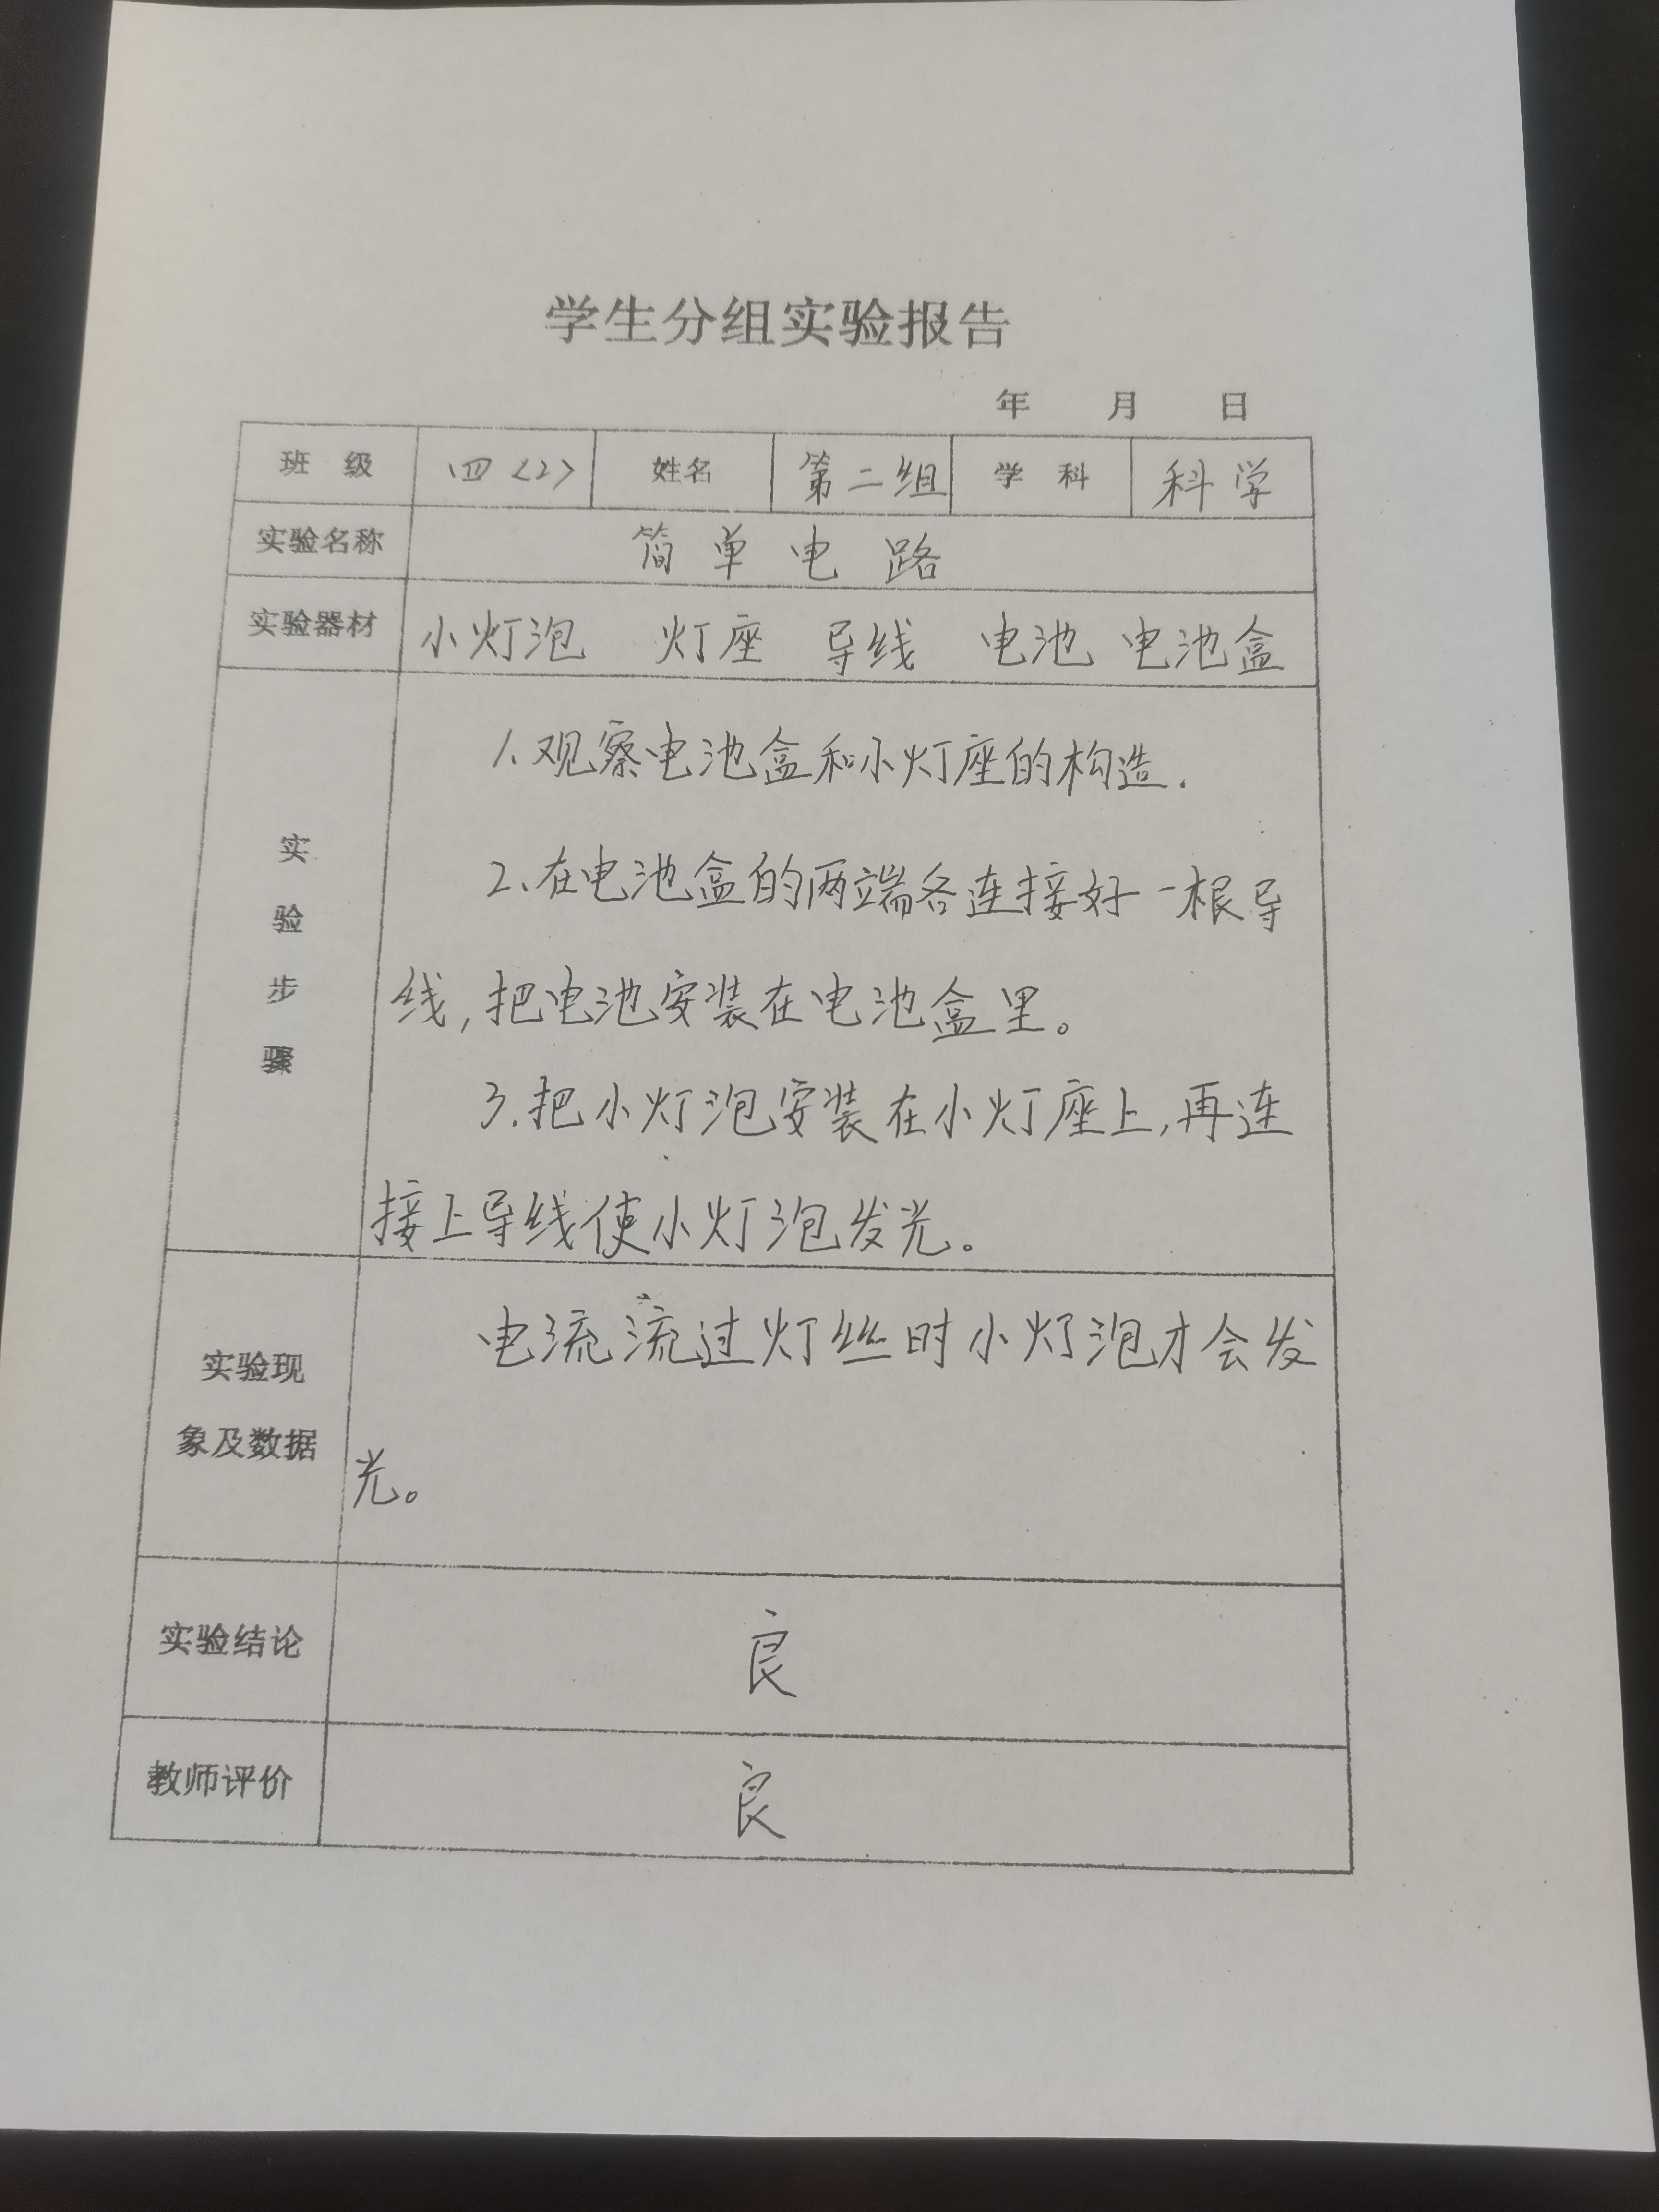 学生分组实验报告
年 月 日
班 级 四<2> 姓名 第二组 学 科 科学
实验名称 简单电路
实验器材 小灯泡 灯座 导线 电池 电池盒
实验步骤
1.观察电池盒和小灯座的构造.
2.在电池盒的两端各连接好一根导
线,把电池安装在电池盒里。
3.把小灯泡安装在小灯座上,再连
接上导线使小灯泡发光。
实验现
象及数据
电流流过灯丝时小灯泡才会发
光。
实验结论 良
教师评价 良